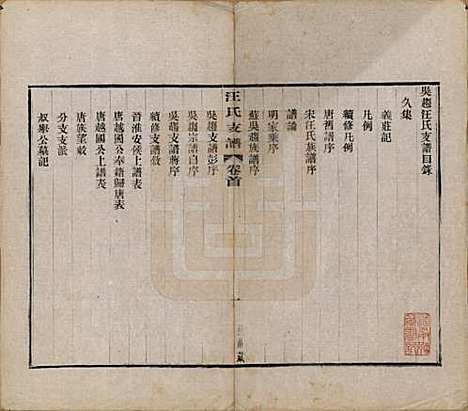 吳趨汪氏支譜目錄
久集
義莊記
凡例
續修凡例
唐舊譜序
宋汪氏族譜序
譜論
明家乘序
蘇吳趨族譜序
汪氏支譜 卷首
一
吳趨支譜彭序
吳趨宗譜白序
吳趨支譜蔣序
續修支譜敘
晉淮安侯上譜表
唐越國公奉籍歸唐表
唐越國公上譜表
唐族望敕
分支支派
叔舉公墓記